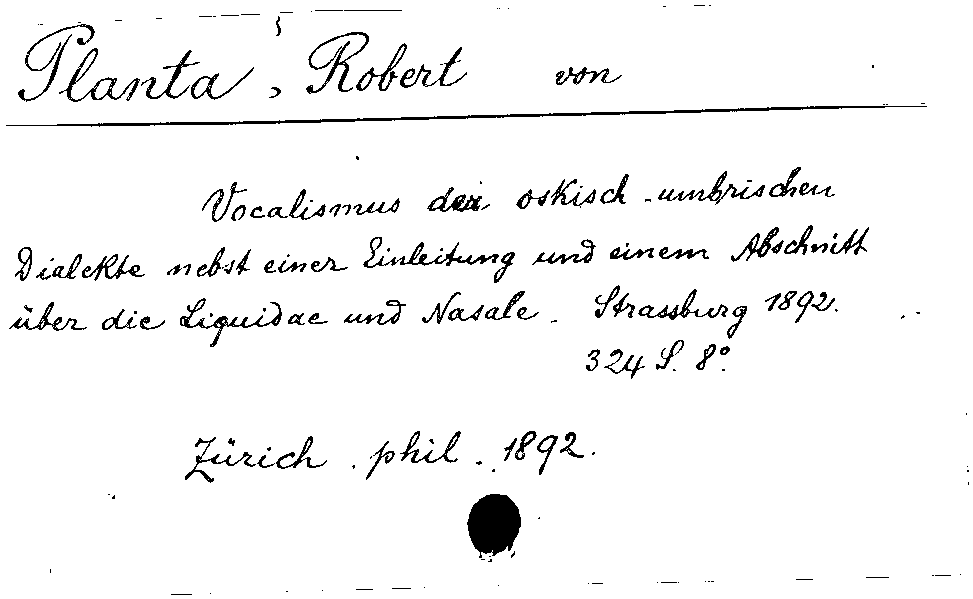 Planta, Robert von
Vocalismus der oskisch-umbrischen
Dialekte nebst einer Einleitung und einem Abschnitt
über die Liquidae und Nasale. Strassburg 1892.
324 S. 8°.
Zürich. phil. 1892.